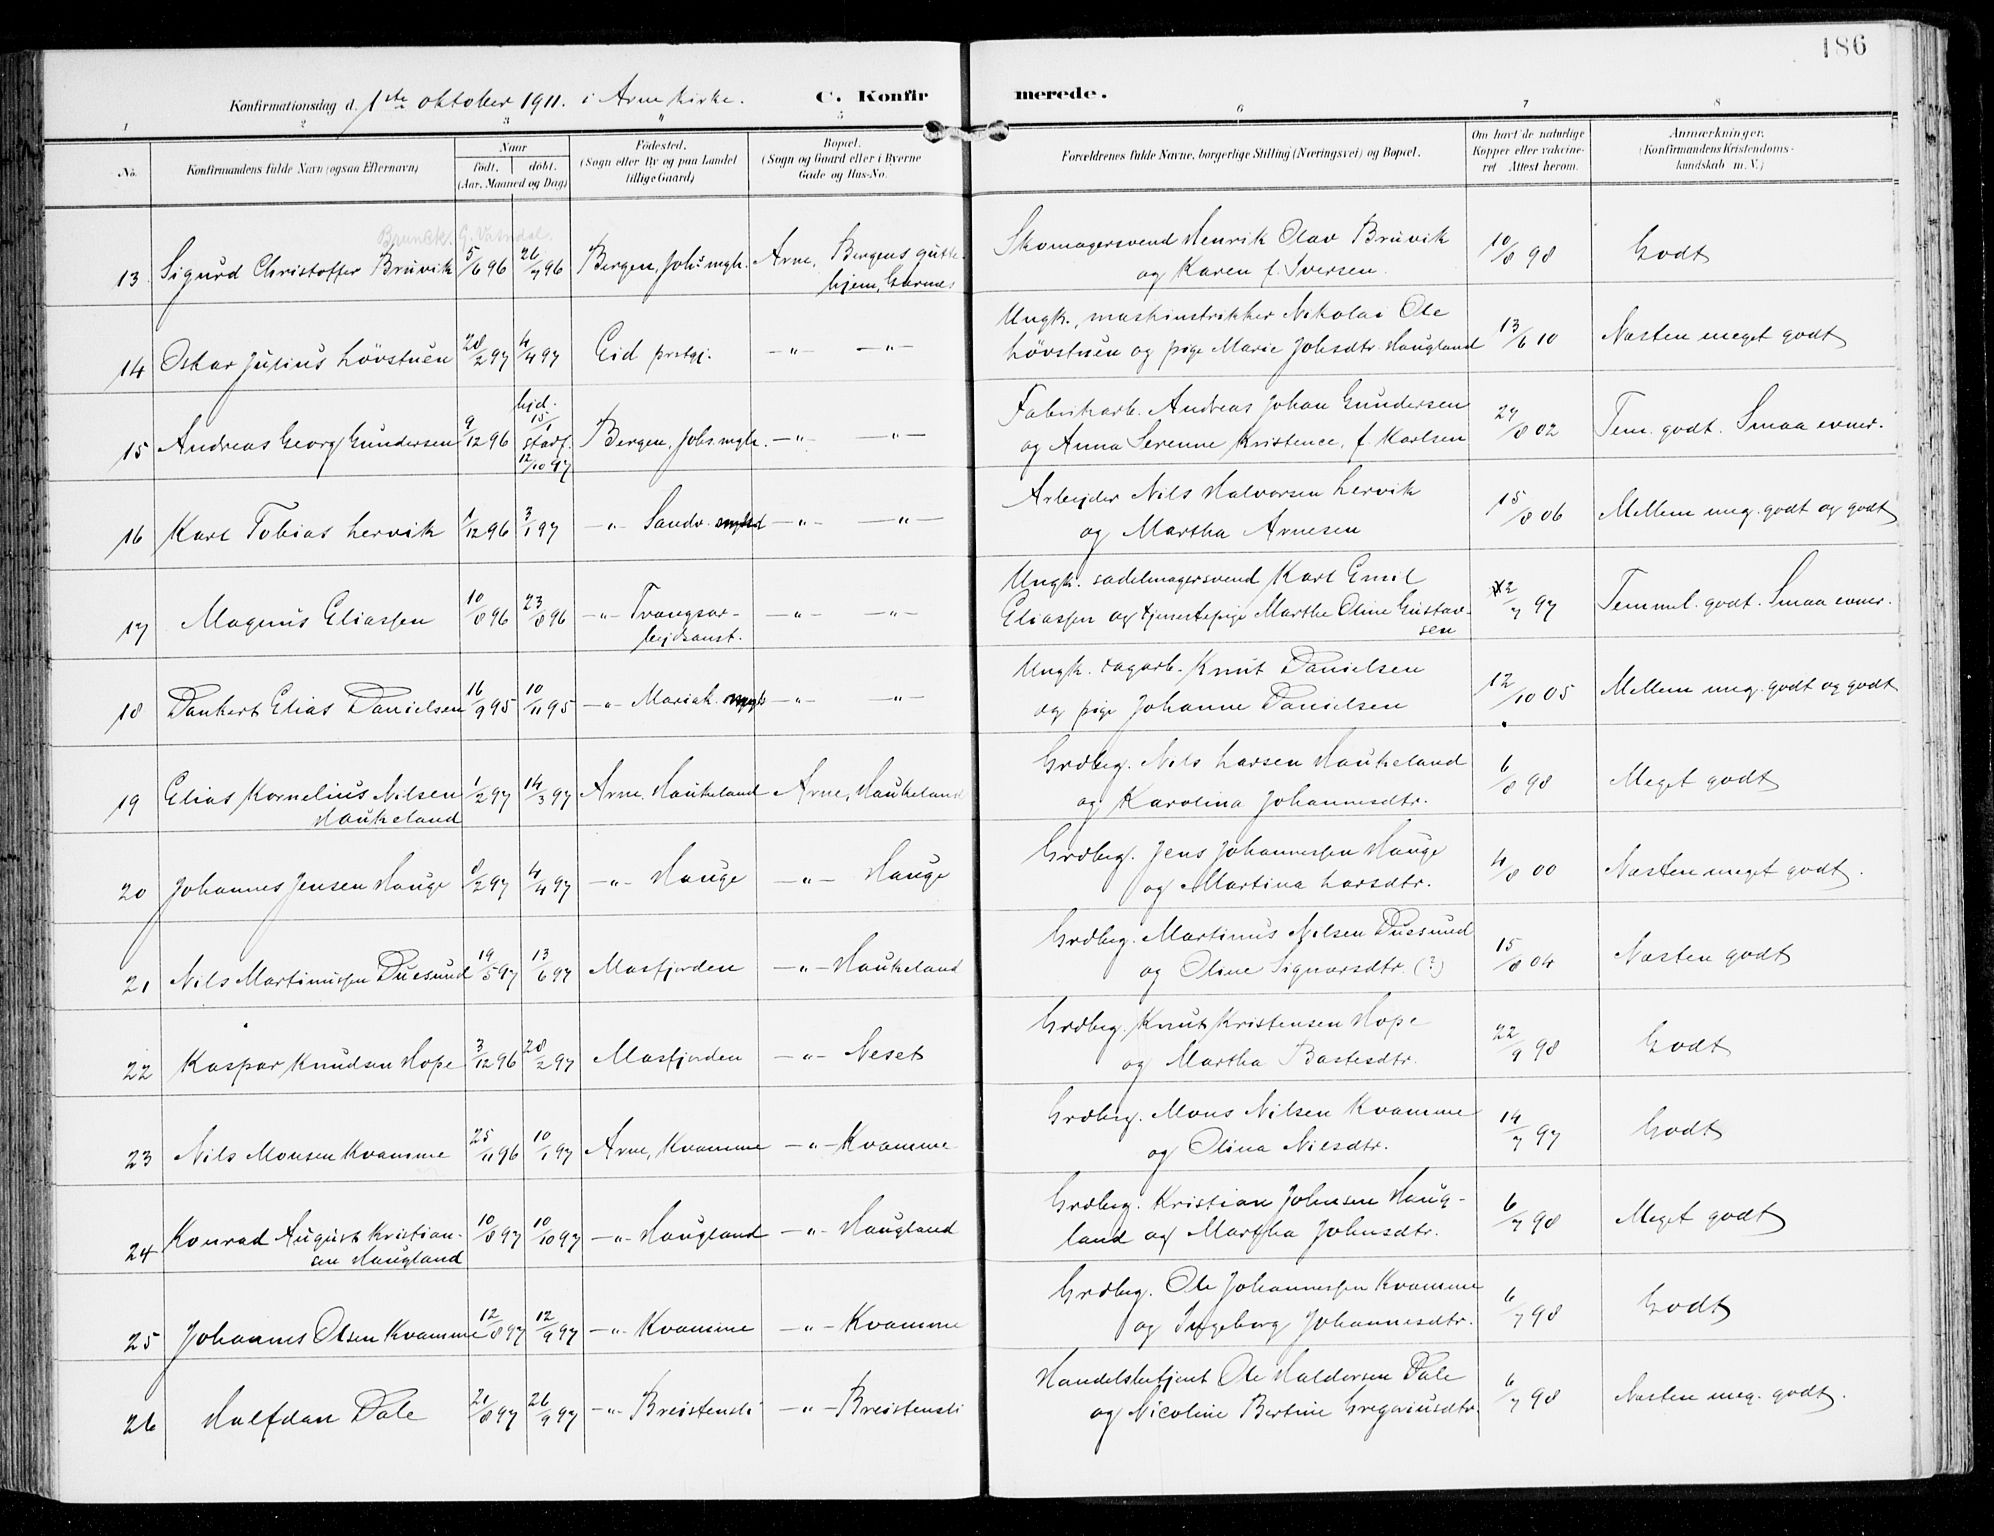 186
Konfirmationsdag d. 1ste oktober 1911. i Arne kirke. C. Konfirmerede.
1 2 3 4 5 6 7 8
No. Konfirmandens fulde Navn (ogsaa Efternavn) Naar født. døbt. (Aar, Maaned og Dag) Fødested. (Sogn eller By og paa Landet tillige Gaard) Bopæl. (Sogn og Gaard eller i Byerne Gade og Hus-No. Forældrenes fulde Navne, borgerlige Stilling (Næringsvei) og Bopæl. Om havt de naturlige Kopper eller vakcineret Attest herom. Anmærkninger. (Konfirmandens Kristendomskundskab m. V.)
13 Sigurd Christoffer Brüvik 5/6 96 26/7 96 Bergen, Johs mgh. Arne, Bergens guttehjem, Garnes Skomagersvend Henrik Olav Brüvik og Karen f. Iversen. 10/8 98 Godt
14 Oskar Julius Lövstuen 28/2 97 4/4 97 Eid prstgj. —"— —"— Ungk., maskinstrikker Nikolai Ole Lövstuen og pige Marie Johsdtr. Haugland 13/6 10 Næsten meget godt
15 Andreas Georg Gundersen 9/12 96 hjd. 15/1 stadf. 12/10 97 Bergen, Johs mgh. —"— —"— Fabrikarb. Andreas Johan Gundersen og Anna Serenne Kristence, f. Karlsen 27/8 02 Tem. godt. Smaa evner.
16 Karl Tobias Lervik 1/12 96 3/1 97 —"— Sandv. —"— —"— Arbejder Nils Halvorsen Lervik og Martha Arnesen 15/8 06 Mellem meg. godt og godt
17 Magnus Eliassen 10/8 96 23/8 96 —"— Tvangsarbejdsanst. —"— —"— Ungk. sadelmagersvend Karl Emil Eliassen og tjenestepige Marthe Oline Gustavsen 2/7 97 Temmel. godt. Smaa evner.
18 Dankert Elias Danielsen 16/9 95 10/11 95 —"— Mariak. —"— —"— Ungk. dagarb. Knut Danielsen og pige Johanne Danielsen 12/10 05 Mellem meg. godt og godt
19 Elias Kornelius Nilsen Haukeland 1/2 97 14/3 97 Arne, Haukeland Arne, Haukeland Grdbrg. Nils Larsen Haukeland og Karolina Johannesdtr. 6/8 98 Meget godt
20 Johannes Jensen Hauge 8/2 97 4/4 97 —"— Hauge —"— Hauge Grdbrg. Jens Johannessen Hauge og Martina Larsdtr. 4/8 00 Næsten meget godt.
21 Nils Martinussen Duesund 19/5 97 13/6 97 Masfjorden —"— Haukeland Grdbrg. Martinus Nilsen Duesund og Oline Signarsdtr. (?) 15/8 04 Næsten godt
22 Kaspar Knudsen Hope 3/12 96 28/2 97 Masfjorden —"— Neset Grdbrg. Knut Kristensen Hope og Martha Bastesdtr. 22/9 98 Godt
23 Nils Monsen Kvamme 25/11 96 10/1 97 Arne, Kvamme —"— Kvamme Grdbrg. Mons Nilsen Kvamme og Olina Nilsdtr. 14/7 97 Godt
24 Konrad August Kristiansen Haugland 10/8 97 10/10 97 —"— Haugland —"— Haugland Grdbrg. Kristian Johnsen Haugland og Martha Johnsdtr. 6/7 98 Meget godt
25 Johannes Olsen Kvamme 12/8 97 12/9 97 —"— Kvamme —"— Kvamme Grdbrg. Ole Johannessen Kvamme og Ingeborg Johannesdtr. 6/7 98 Godt
26 Halfdan Dale 21/8 97 26/9 97 —"— Breistensli —"— Breistensli Handelsbetjent Ole Haldorsen Dale og Nicoline Bertine Gregoriusdtr. 6/7 98 Næsten meg. godt.